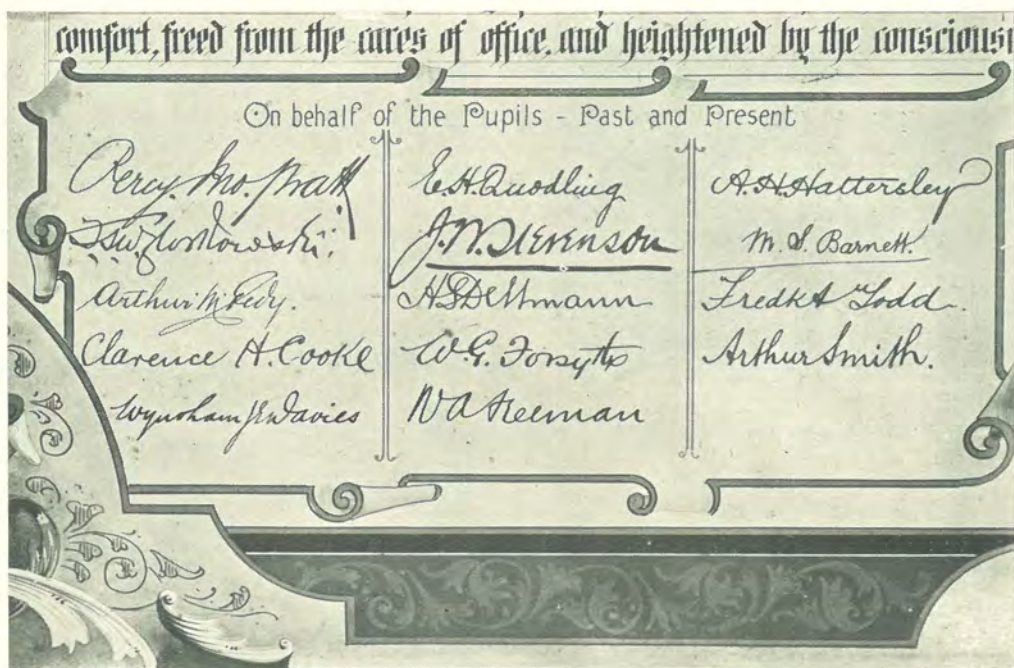 comfort, freed from the cares of office, and heightened by the consciousn
On behalf of the Pupils - Past and Present
Percy Jno. Pratt
Arthur
Clarence H. Cooke
Wyndham J E Davies
E.H. Quodling
J.M. Stevenson
W.G. Forsyth
N A Freeman
A.H. Hattersley
M. S. Barnett.
Fredk A Todd.
Arthur Smith.